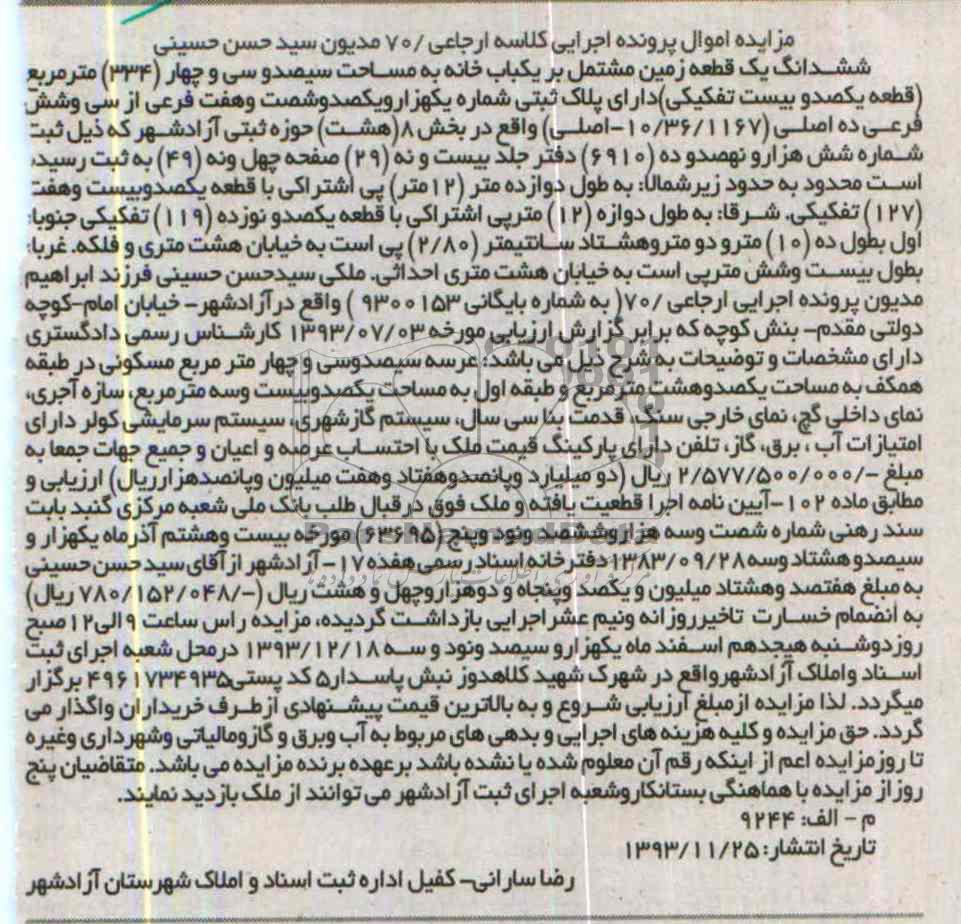 مزایده اموال پرونده اجرایی کلاسه ارجاعی /۷۰ مدیون سید حسن حسینی
ششدانگ یک قطعه زمین مشتمل بر یکباب خانه به مساحت سیصدو سی و چهار (۳۳۴) مترمربع
(قطعه یکصدو بیست تفکیکی)دارای پلاک ثبتی شماره یکهزارویکصدوشصت وهفت فرعی از سی وشش
فرعی ده اصلی (۱۰/۳۶/۱۱۶۷-اصلی) واقع در بخش ۸(هشت) حوزه ثبتی آزادشهر که ذیل ثبت
شماره شش هزارو نهصدو ده (۶۹۱۰) دفتر جلد بیست و نه (۲۹) صفحه چهل ونه (۴۹) به ثبت رسیده
است محدود به حدود زیرشمالا: به طول دوازده متر (۱۲متر) پی اشتراکی با قطعه یکصدوبیست وهفت
(۱۲۷) تفکیکی. شرقا: به طول دوازه (۱۲) مترپی اشتراکی با قطعه یکصدو نوزده (۱۱۹) تفکیکی جنوبا:
اول بطول ده (۱۰) مترو دو متروهشتاد سانتیمتر (۲/۸۰) پی است به خیابان هشت متری و فلکه. غربا:
بطول بیست وشش مترپی است به خیابان هشت متری احداثی. ملکی سیدحسن حسینی فرزند ابراهیم
مدیون پرونده اجرایی ارجاعی /۷۰( به شماره بایگانی ۹۳۰۰۱۵۳ ) واقع درآزادشهر- خیابان امام-کوچه
دولتی مقدم- بنش کوچه که برابر گزارش ارزیابی مورخه ۱۳۹۳/۰۷/۰۳ کارشناس رسمی دادگستری
دارای مشخصات و توضیحات به شرح ذیل می باشد: عرسه سیصدوسی و چهار متر مربع مسکونی در طبقه
همکف به مساحت یکصدوهشت مترمربع و طبقه اول به مساحت یکصدوبیست وسه مترمربع، سازه آجری،
نمای داخلی گچ، نمای خارجی سنگ، قدمت بنا سی سال، سیستم گازشهری، سیستم سرمایشی کولر دارای
امتیازات آب ، برق، گاز، تلفن دارای پارکینگ قیمت ملک با احتساب عرصه و اعیان و جمیع جهات جمعا به
مبلغ -/۲/۵۷۷/۵۰۰/۰۰۰ ریال (دو میلیارد وپانصدوهفتاد وهفت میلیون وپانصدهزارریال) ارزیابی و
مطابق ماده ۱۰۲-آیین نامه اجرا قطعیت یافته و ملک فوق درقبال طلب بانک ملی شعبه مرکزی گنبد بابت
سند رهنی شماره شصت وسه هزاروششصد ونود وپنج (۶۳۶۹۵) مورخه بیست وهشتم آذرماه یکهزار و
سیصدوهشتاد وسه ۱۳۸۳/۰۹/۲۸دفترخانه اسناد رسمی هفده ۱۷- آزادشهر از آقای سید حسن حسینی
به مبلغ هفتصد وهشتاد میلیون و یکصد وپنجاه و دوهزاروچهل و هشت ریال (-/۷۸۰/۱۵۲/۰۴۸ ریال)
به انضمام خسارت تاخیرروزانه ونیم عشراجرایی بازداشت گردیده، مزایده راس ساعت ۹الی۱۲صبح
روزدوشنبه هیجدهم اسفند ماه یکهزارو سیصد ونود و سه ۱۳۹۳/۱۲/۱۸ درمحل شعبه اجرای ثبت
اسناد واملاک آزادشهرواقع در شهرک شهید کلاهدوز نبش پاسدار۵ کد پستی۴۹۶۱۷۳۴۹۳۵ برگزار
میگردد. لذا مزایده ازمبلغ ارزیابی شروع و به بالاترین قیمت پیشنهادی ازطرف خریداران واگذار می
گردد. حق مزایده و کلیه هزینه های اجرایی و بدهی های مربوط به آب وبرق و گازومالیاتی وشهرداری وغیره
تا روزمزایده اعم از اینکه رقم آن معلوم شده یا نشده باشد برعهده برنده مزایده می باشد. متقاضیان پنج
روزاز مزایده با هماهنگی بستانکاروشعبه اجرای ثبت آزادشهر می توانند از ملک بازدید نمایند.
م - الف: ۹۲۴۴
تاریخ انتشار: ۱۳۹۳/۱۱/۲۵
رضا سارانی- کفیل اداره ثبت اسناد و املاک شهرستان آزادشهر